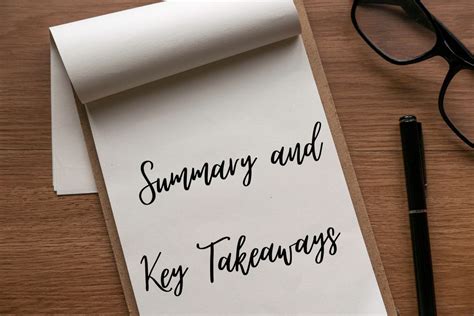 Summary and
Key Takeaways